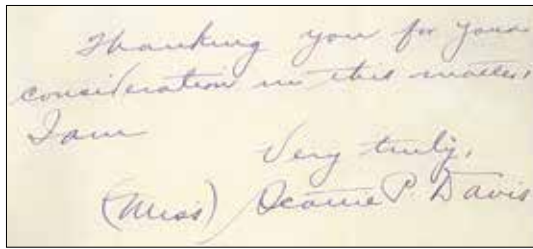 Thanking you for your
consideration in this matter,
I am
Very truly,
(Miss) P. Davis